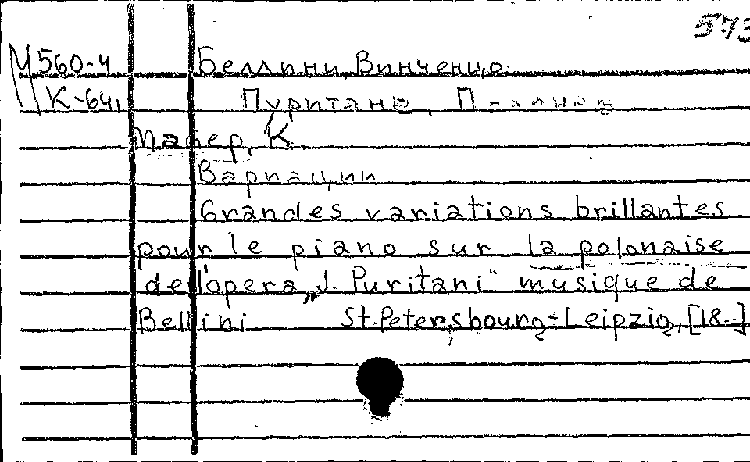 573
М560-4 Беллини, Винченцо.
К-641 Пуритане.
Майер, К.
Вариации
Grandes variations brillantes
pour le piano sur la polonaise
de l'opera „J. Puritani" musique de
Bellini St.Petersbourg-Leipzig, [18..]